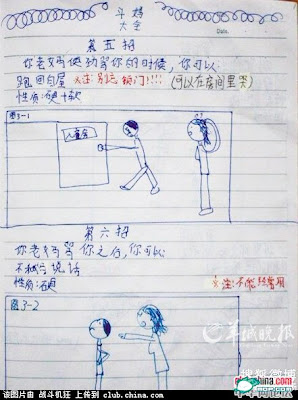 斗妈
大全
Date.
第五招
你老妈使劲骂你的时候,你可以
跑回自屋 注:别忘锁门!!!! (可以在房间里哭)
性质:硬+软
图3-1
第六招
你老妈骂你之后,你可以
不和她说话
性质:硬
注:不能经常用
图3-2
羊城晚报
搜狐微博
该图片由 战斗机狂 上传到 club.china.com